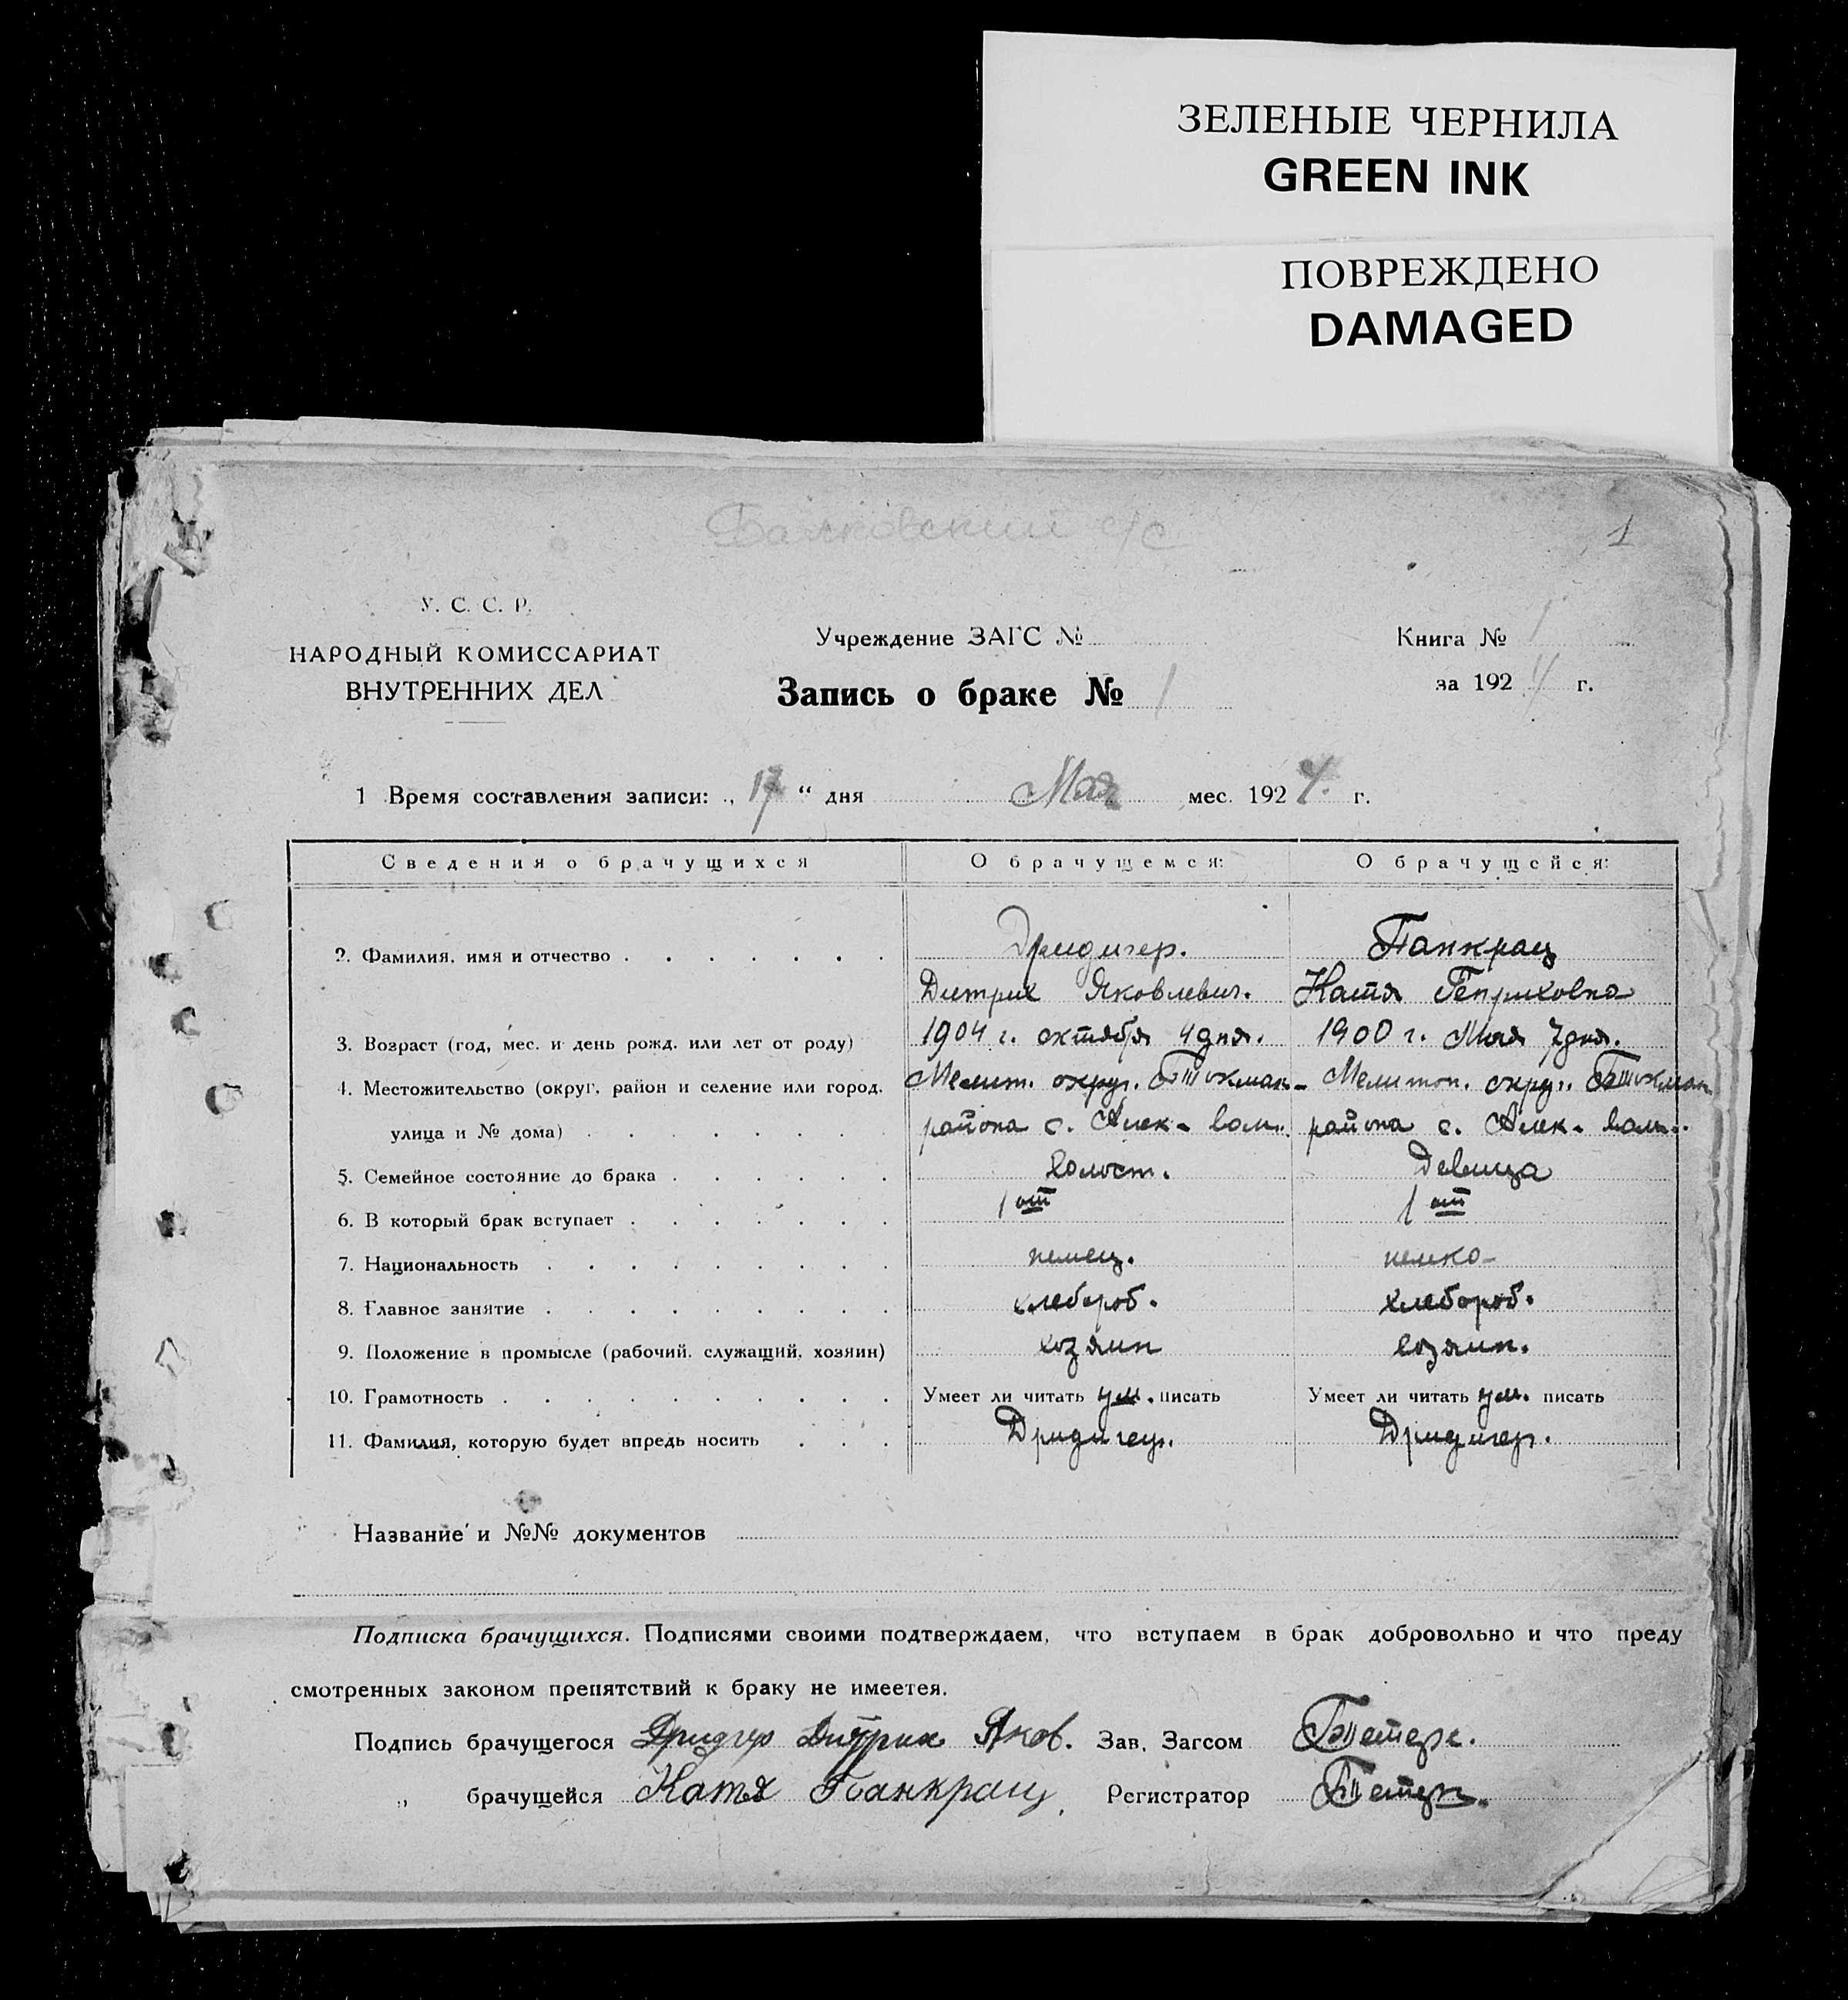 ЗЕЛЕНЫЕ ЧЕРНИЛА
GREEN INK
ПОВРЕЖДЕНО
DAMAGED
Балковский с/с
1
У. С. С. Р.
НАРОДНЫЙ КОМИССАРИАТ
ВНУТРЕННИХ ДЕЛ
Учреждение ЗАГС №
Запись о браке № 1
Книга № 1
за 1924 г.
1 Время составления записи: „ 17 “ дня Мая мес. 1924. г.
Сведения о брачущихся О брачущемся: О брачущейся:
2. Фамилия, имя и отчество Дридигер. Панкрац
Дитрих Яковлевич. Катя Генриховна
3. Возраст (год, мес. и день рожд. или лет от роду) 1904 г. октября 4 дня. 1900 г. Мая 7 дня.
4. Местожительство (округ, район и селение или город, Мелит. округ. Б Токмак- Мелитоп. округ. Б Токмак
улица и № дома) района с. Алек- вол. района с. Алек- вол.
5. Семейное состояние до брака холост. Девица
6. В который брак вступает 1 ый 1 ый
7. Национальность немец. немка-
8. Главное занятие хлебороб. хлебороб.
9. Положение в промысле (рабочий, служащий, хозяин) хозяин хозяин.
10. Грамотность Умеет ли читать ум. писать Умеет ли читать ум. писать
11. Фамилия, которую будет впредь носить Дридигер. Дридигер.
Название и №№ документов
Подписка брачущихся. Подписями своими подтверждаем, что вступаем в брак добровольно и что преду
смотренных законом препятствий к браку не имеется.
Подпись брачущегося Дридгер Дитрих Яков. Зав. Загсом
„ брачущейся Катя Панкрац. Регистратор